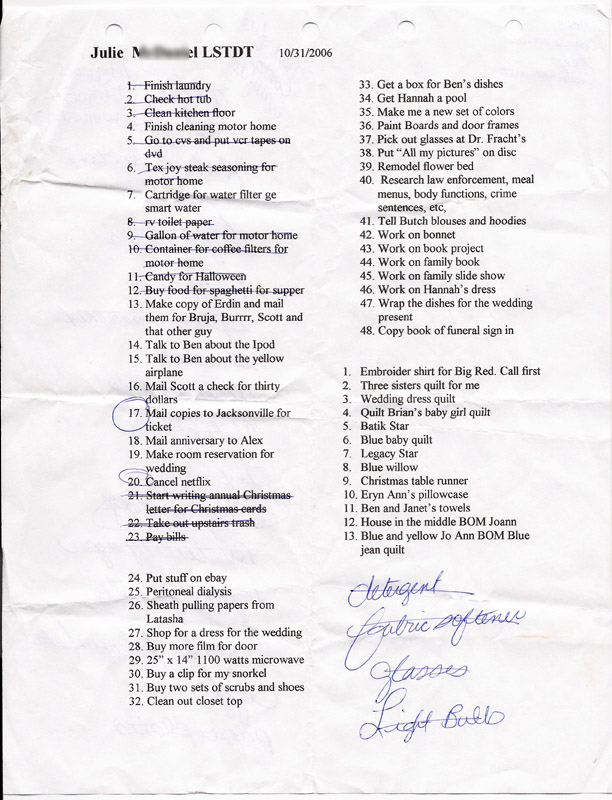 Julie M el LSTDT 10/31/2006
1. Finish laundry
2. Check hot tub
3. Clean kitchen floor
4. Finish cleaning motor home
5. Go to cvs and put vcr tapes on
dvd
6. Tex joy steak seasoning for
motor home
7. Cartridge for water filter ge
smart water
8. rv toilet paper
9. Gallon of water for motor home
10. Container for coffee filters for
motor home
11. Candy for Halloween
12. Buy food for spaghetti for supper
13. Make copy of Erdin and mail
them for Bruja, Burrrr, Scott and
that other guy
14. Talk to Ben about the Ipod
15. Talk to Ben about the yellow
airplane
16. Mail Scott a check for thirty
dollars
17. Mail copies to Jacksonville for
ticket
18. Mail anniversary to Alex
19. Make room reservation for
wedding
20. Cancel netflix
21. Start writing annual Christmas
letter for Christmas cards
22. Take out upstairs trash
23. Pay bills
24. Put stuff on ebay
25. Peritoneal dialysis
26. Sheath pulling papers from
Latasha
27. Shop for a dress for the wedding
28. Buy more film for door
29. 25” x 14” 1100 watts microwave
30. Buy a clip for my snorkel
31. Buy two sets of scrubs and shoes
32. Clean out closet top
33. Get a box for Ben’s dishes
34. Get Hannah a pool
35. Make me a new set of colors
36. Paint Boards and door frames
37. Pick out glasses at Dr. Fracht’s
38. Put “All my pictures” on disc
39. Remodel flower bed
40. Research law enforcement, meal
menus, body functions, crime
sentences, etc,
41. Tell Butch blouses and hoodies
42. Work on bonnet
43. Work on book project
44. Work on family book
45. Work on family slide show
46. Work on Hannah’s dress
47. Wrap the dishes for the wedding
present
48. Copy book of funeral sign in
1. Embroider shirt for Big Red. Call first
2. Three sisters quilt for me
3. Wedding dress quilt
4. Quilt Brian’s baby girl quilt
5. Batik Star
6. Blue baby quilt
7. Legacy Star
8. Blue willow
9. Christmas table runner
10. Eryn Ann’s pillowcase
11. Ben and Janet’s towels
12. House in the middle BOM Joann
13. Blue and yellow Jo Ann BOM Blue
jean quilt
detergent
fabric softener
glasses
Light Bulb